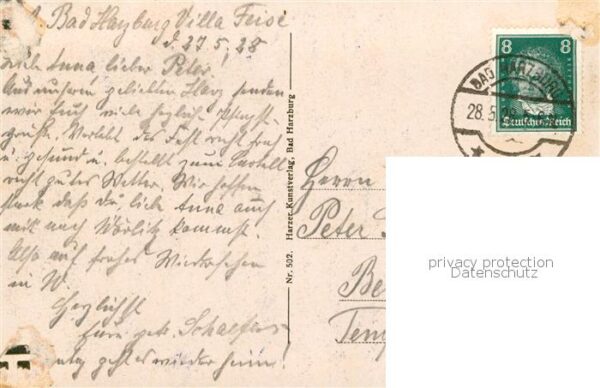 Bad Harzburg Villa Feise
d. 27.5.28
Liebe Anna, lieber Peter!
Aus unserem geliebten Harz senden
wir Euch viele herzliche Pfingst-
grüße. Verlebt das Fest recht froh
u. gesund u. bestellt zum
recht gutes Wetter. Wir hoffen
stark daß du, liebe Anna auch
mit nach Wörlitz kommst.
Also auf frohes Wiedersehen
in W.
Herzlichst
Eure getr. Schaefers
geht es wieder heim!
Nr. 502. Harzer Kunstverlag, Bad Harzburg
8 8
Deutsches Reich
BAD HARZBURG
28.5.28
Herrn
Peter
Be
Temp
privacy protection
Datenschutz